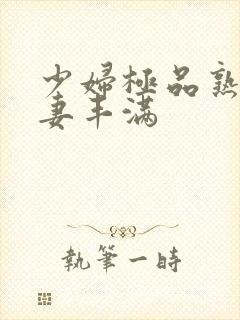 少婦極品熟
妻丰满
執筆一時